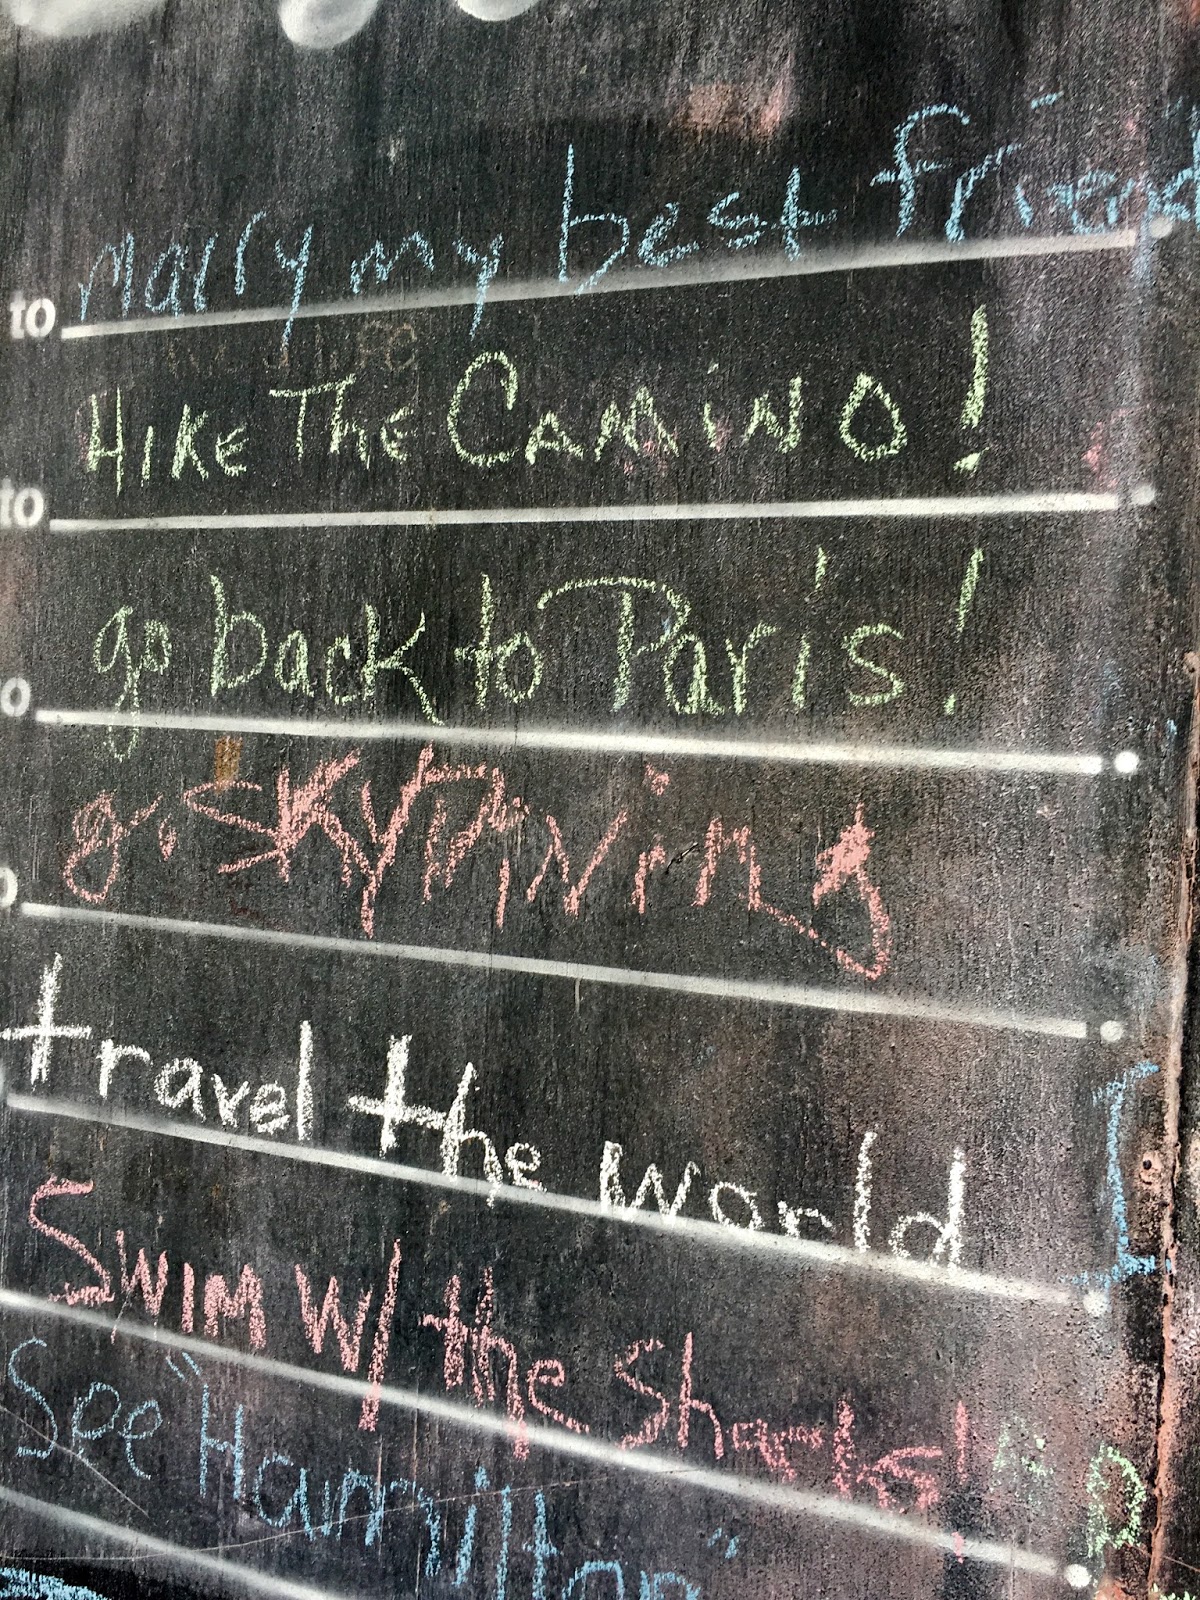 to marry my best friend
to HIKE THE CAMINO!
o go back to Paris!
o go SKYDiViNg
travel the world
SWIM W/ the Sharks!
See "Hamilton"